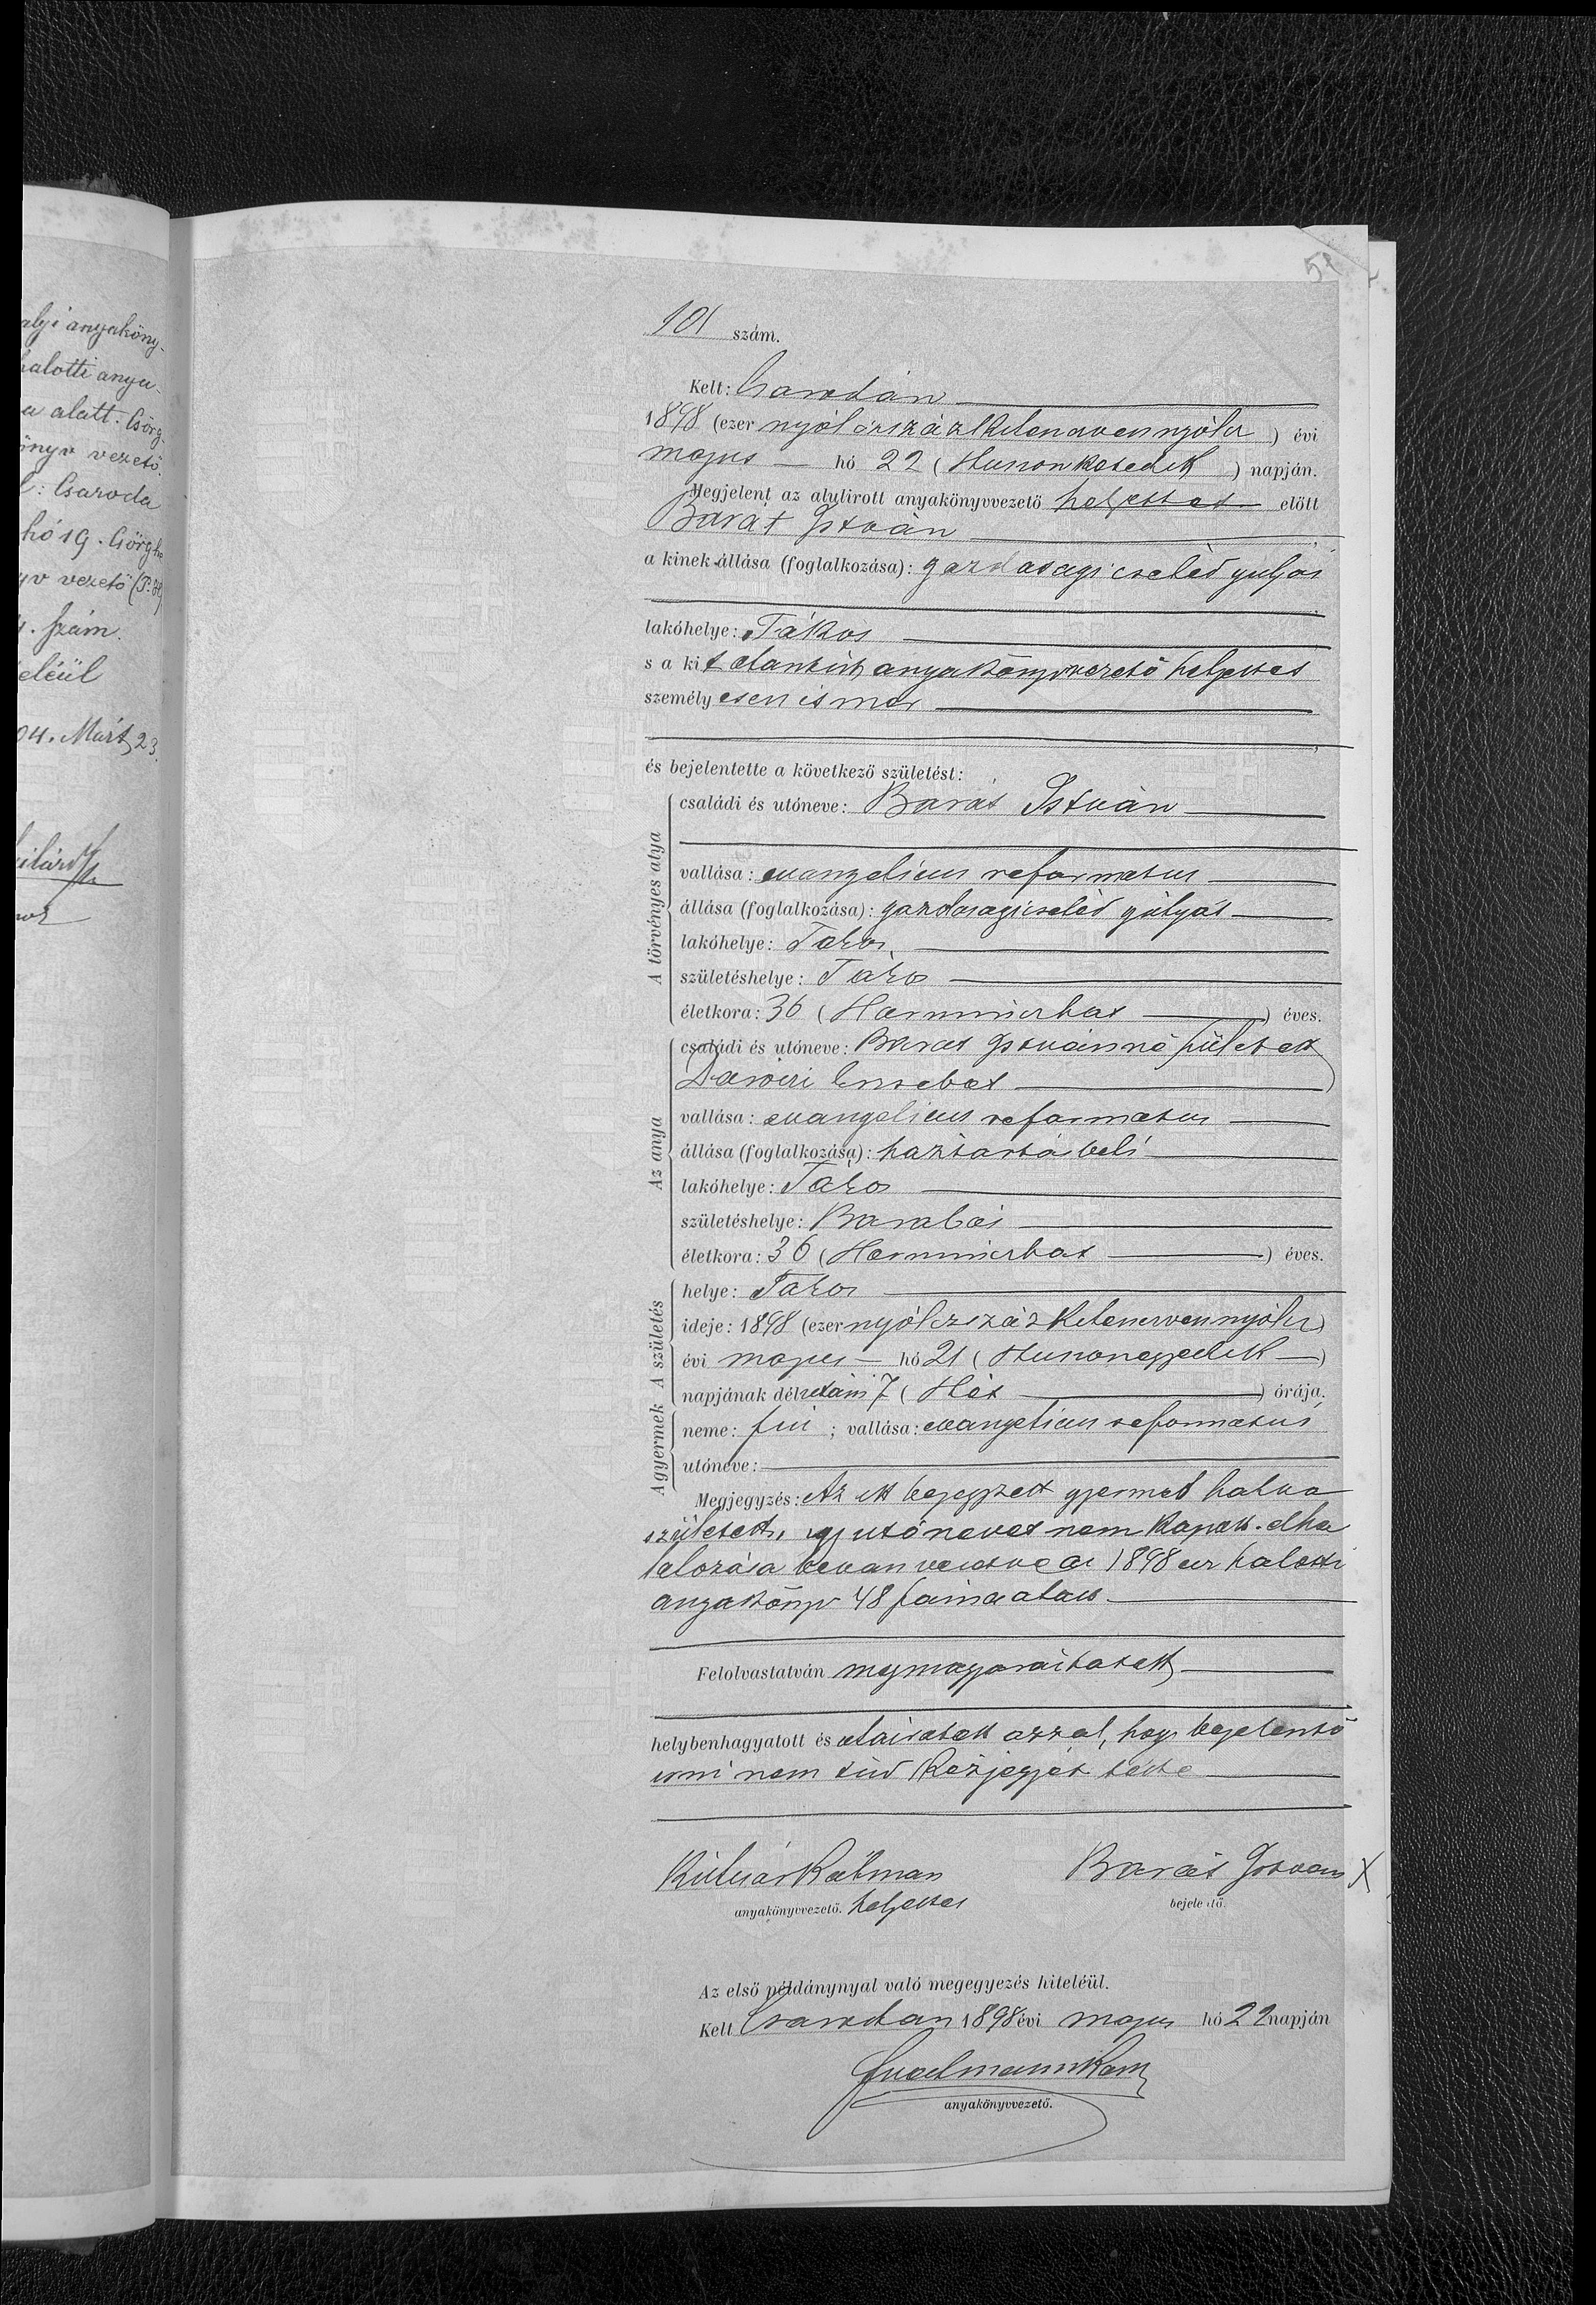 alyi anyaköny-
halotti anya-
a alatt. Csörg
önyv vezető.
l: Csaroda
hó 19. Csörgh
yv vezető (P.H.)
. szám.
eléül
04. Márt 23.
51
101 szám.
Kelt: Csarodán
1898 (ezer nyólczszázkilenczvennyólcz) évi
majus hó 22 (Huszonkettedik) napján.
Megjelent az alulirott anyakönyvvezető helyettes előtt
Barát István
a kinek állása (foglalkozása): gazdasagi cseléd gulyás
lakóhelye: Tákos
s a kit alantirt anyakönyvvezető helyettes
személyesen ismer
és bejelentette a következő születést:
A törvényes atya
családi és utóneve: Barát István
vallása: evangelicus reformatus
állása (foglalkozása): gazdasagi cseléd gulyás
lakóhelye: Takos
születéshelye: Tákos
életkora: 36 (Harminczhat) éves.
Az anya
családi és utóneve: Barat Istvánné született
Erzsebet
vallása: evangelicus reformatus
állása (foglalkozása): haztartásbeli
lakóhelye: Tákos
születéshelye: Barabás
életkora: 36 (Harminczhat) éves.
A születés
helye: Takos
ideje: 1898 (ezer nyólczszázkilenczvennyólcz)
évi majus hó 21 (Huszonegyedik)
napjának délutáni 7 (Hét) órája.
A gyermek
neme: fiu; vallása: evangelicus reformatus
utóneve:
Megjegyzés: Az itt bejegyzett gyermek halva
született, igy utónevet nem kapott. elha
lalozása be van vezetve az 1898 évi halotti
anyakönyv 48 száma alatt.
Felolvastatván megmagyaráztatott
helybenhagyatott és aláiratott azzal, hogy bejelentő
irni nem tud kézjegyét tette
Kálmán
anyakönyvvezető. helyettes
Barát István X
bejelentő.
Az első példánynyal való megegyezés hiteléül.
Kelt Csarodan 1898 évi majus hó 22 napján
anyakönyvvezető.